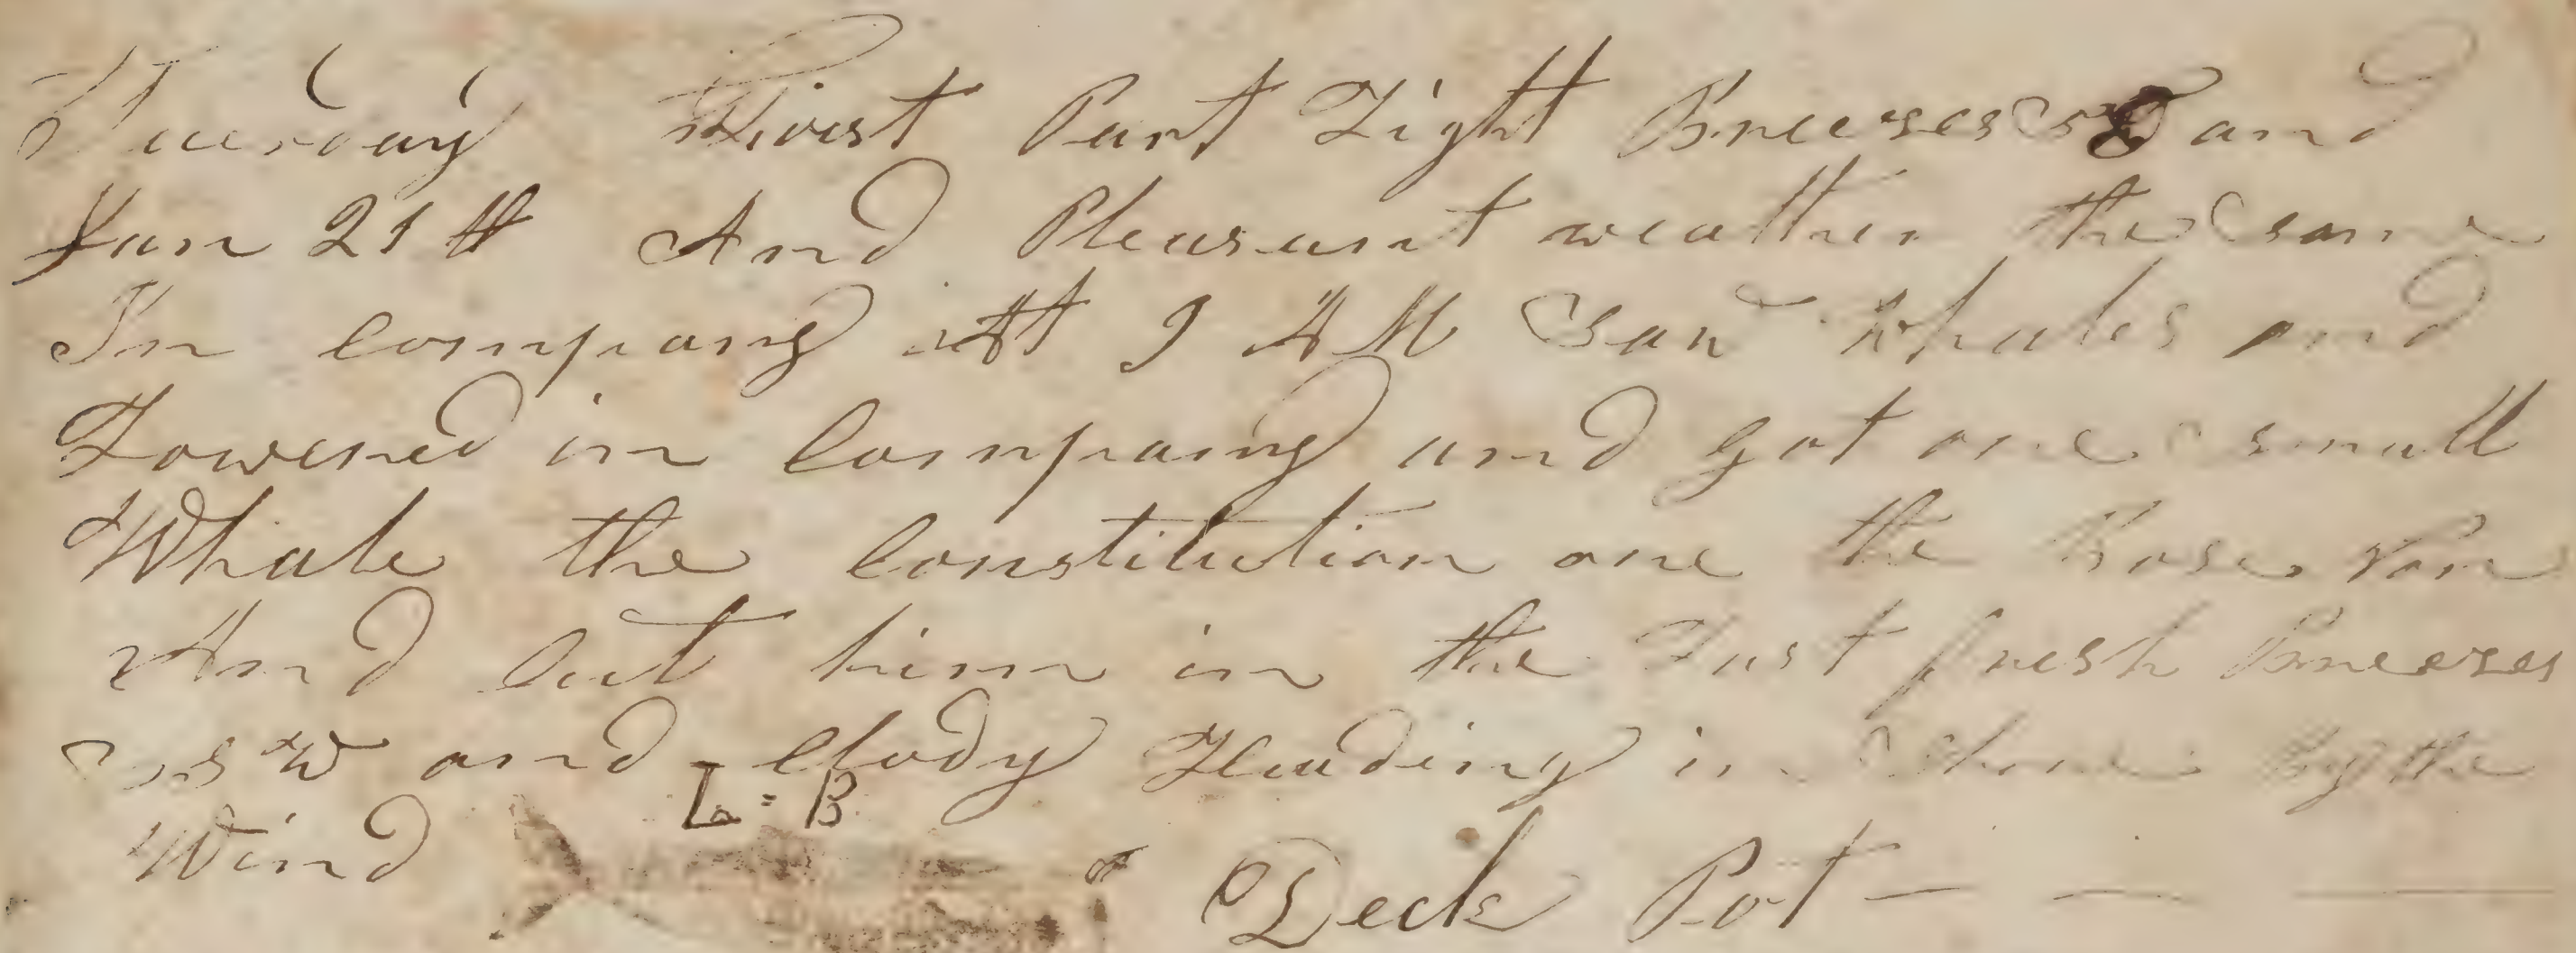 Tuesday First Part Light Breeses and
Jan 21th And Pleasant weather the same
In Company At 9 AM Saw Whales and
Lowered in Company and got one small
Whale the Constitution one the Rose
And Cut him in the Last fresh Breeses
SSW and Clody Heading in Shore by the
Wind
L = B
Deck Pot